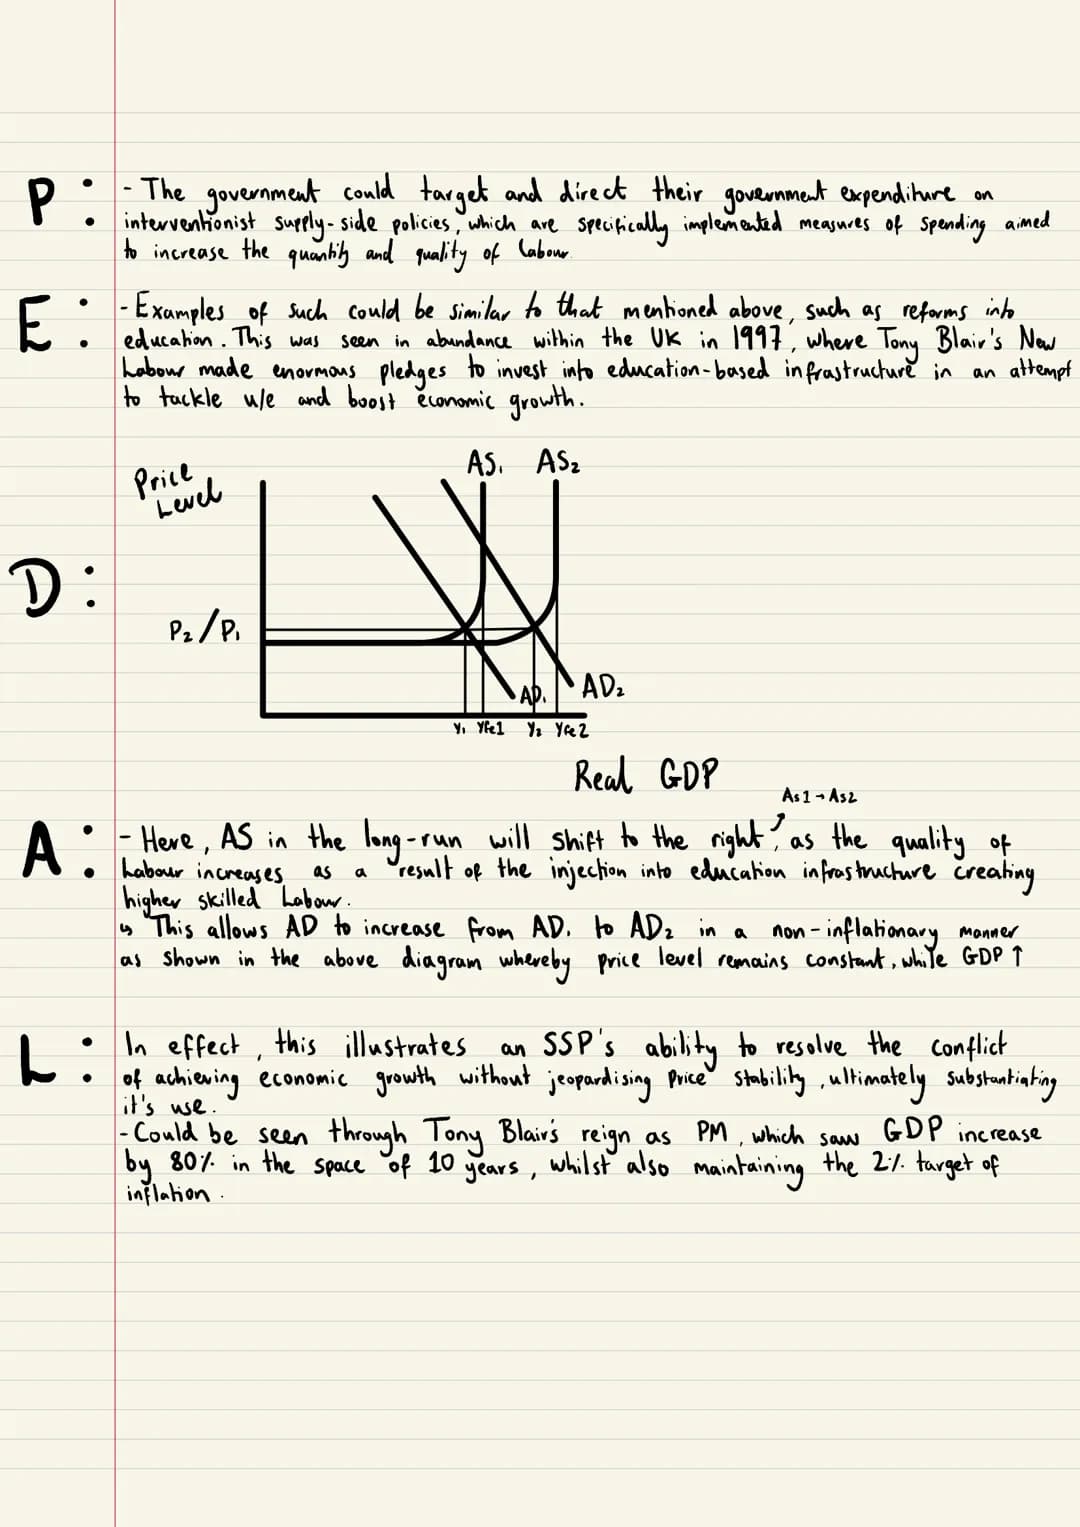 P: - The government could target and direct their government expenditure on
interventionist supply-side policies, which are specifically implemented measures of spending aimed
to increase the quantity and quality of labour.
E: - Examples of such could be similar to that mentioned above, such as reforms into
education. This was seen in abundance within the UK in 1997, where Tony Blair's New
Labour made enormous pledges to invest into education-based infrastructure in an attempt
to tackle u/e and boost economic growth.
Price
Level
AS1 AS2
D:
P2/P1
AD1 AD2
Y1 Yfe1 Y2 Yfe2
Real GDP
As1 → As2
A: - Here, AS in the long-run will shift to the right, as the quality of
Labour increases as a result of the injection into education infrastructure creating
higher skilled Labour.
↳ This allows AD to increase from AD1 to AD2 in a non-inflationary manner
as shown in the above diagram whereby price level remains constant, while GDP ↑
L: In effect, this illustrates an SSP's ability to resolve the conflict
of achieving economic growth without jeopardising price stability, ultimately substantiating
it's use.
- Could be seen through Tony Blair's reign as PM, which saw GDP increase
by 80% in the space of 10 years, whilst also maintaining the 2% target of
inflation.